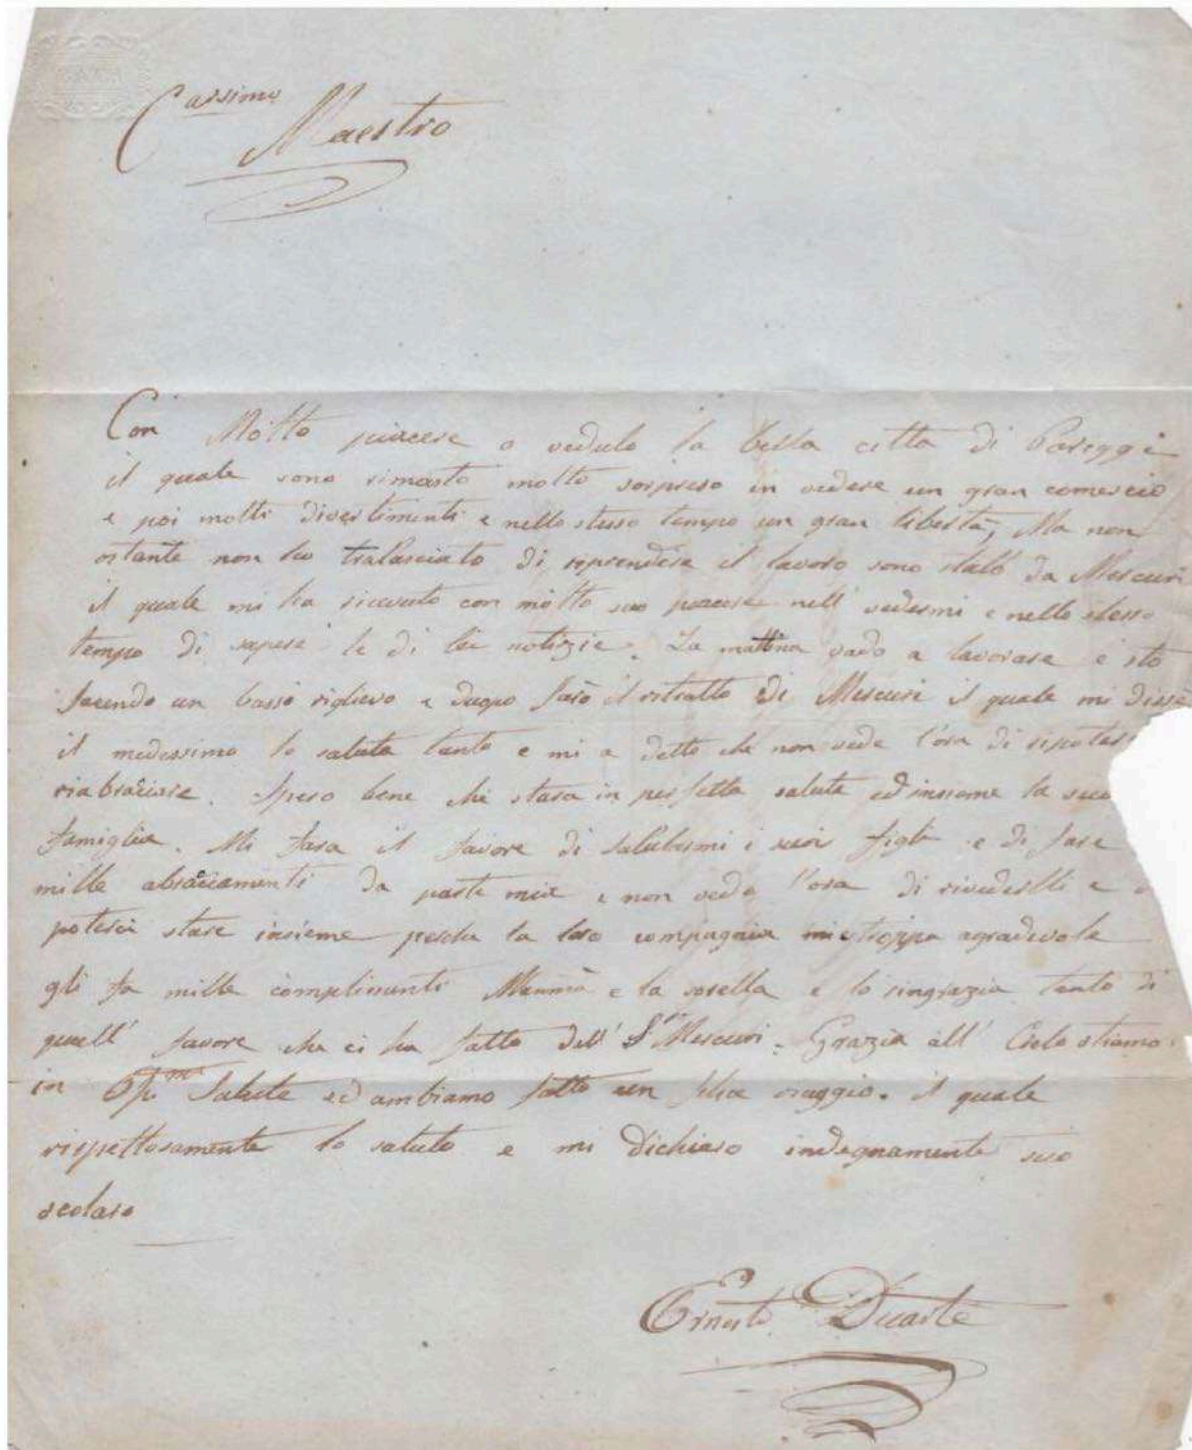 Carissimo
Maestro
Con Molto piacere o veduto la bella citta di Pareggi
il quale sono rimasto molto sorpreso in vedere un gran comercio
e poi molti divertimenti e nello stesso tempo un gran libertà, Ma non
ostante non ho tralasciato di riprendere il lavoro sono stato da Mercuri
il quale mi ha ricevuto con molto suo piacere nell' vedermi e nello stesso
tempo di sapere le di lei notizie. La mattina vado a lavorare e sto
facendo un basso riglievo e duopo farò il ritratto di Mercuri il quale mi disse
il medessimo lo saluta tanto e mi a detto che non vede l'ora di
riabraciare. Spero bene che stara in perfetta salute ed insieme la sua
famiglia. Mi fara il favore di salutarmi i suoi figli e di fare
mille abraciamenti da parte mia e non vedo l'ora di rivederlli e
poterci stare insieme perche la loro compagnia mie troppa agradevole
gli fa mille complimenti Mammà e la sorella e lo ringrazia tanto di
quell' favore che ci ha fatto dell' Sr Mercuri. Grazia all' Cielo stiamo
in Ot.ma Salute ed ambiamo fatto un felice viaggio. il quale
rispettosamente lo saluto e mi dichiaro indegnamente suo
scolaro
Ernesto Duarte